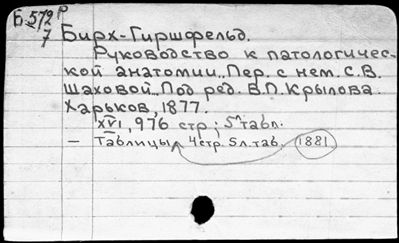 Б.572 Р
7
Бирх-Гиршфельд.
Руководство к патологичес-
кой анатомии. Пер. с нем. С.В.
Шаховой. Под ред. В.П. Крылова.
Харьков, 1877.
XVI, 976 стр; 5 табл.
— Таблицы 4стр. 5л. таб. 1881